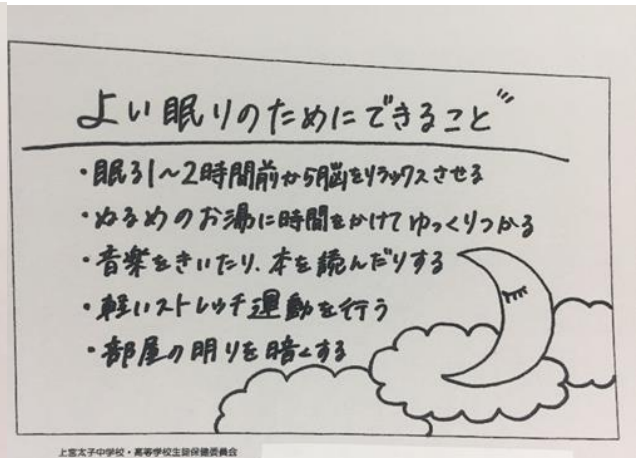 よい眠りのためにできること
・眠る1～2時間前から脳をリラックスさせる
・ぬるめのお湯に時間をかけてゆっくりつかる
・音楽をきいたり、本を読んだりする
・軽いストレッチ運動を行う
・部屋の明りを暗くする
上宮太子中学校・高等学校生徒保健委員会